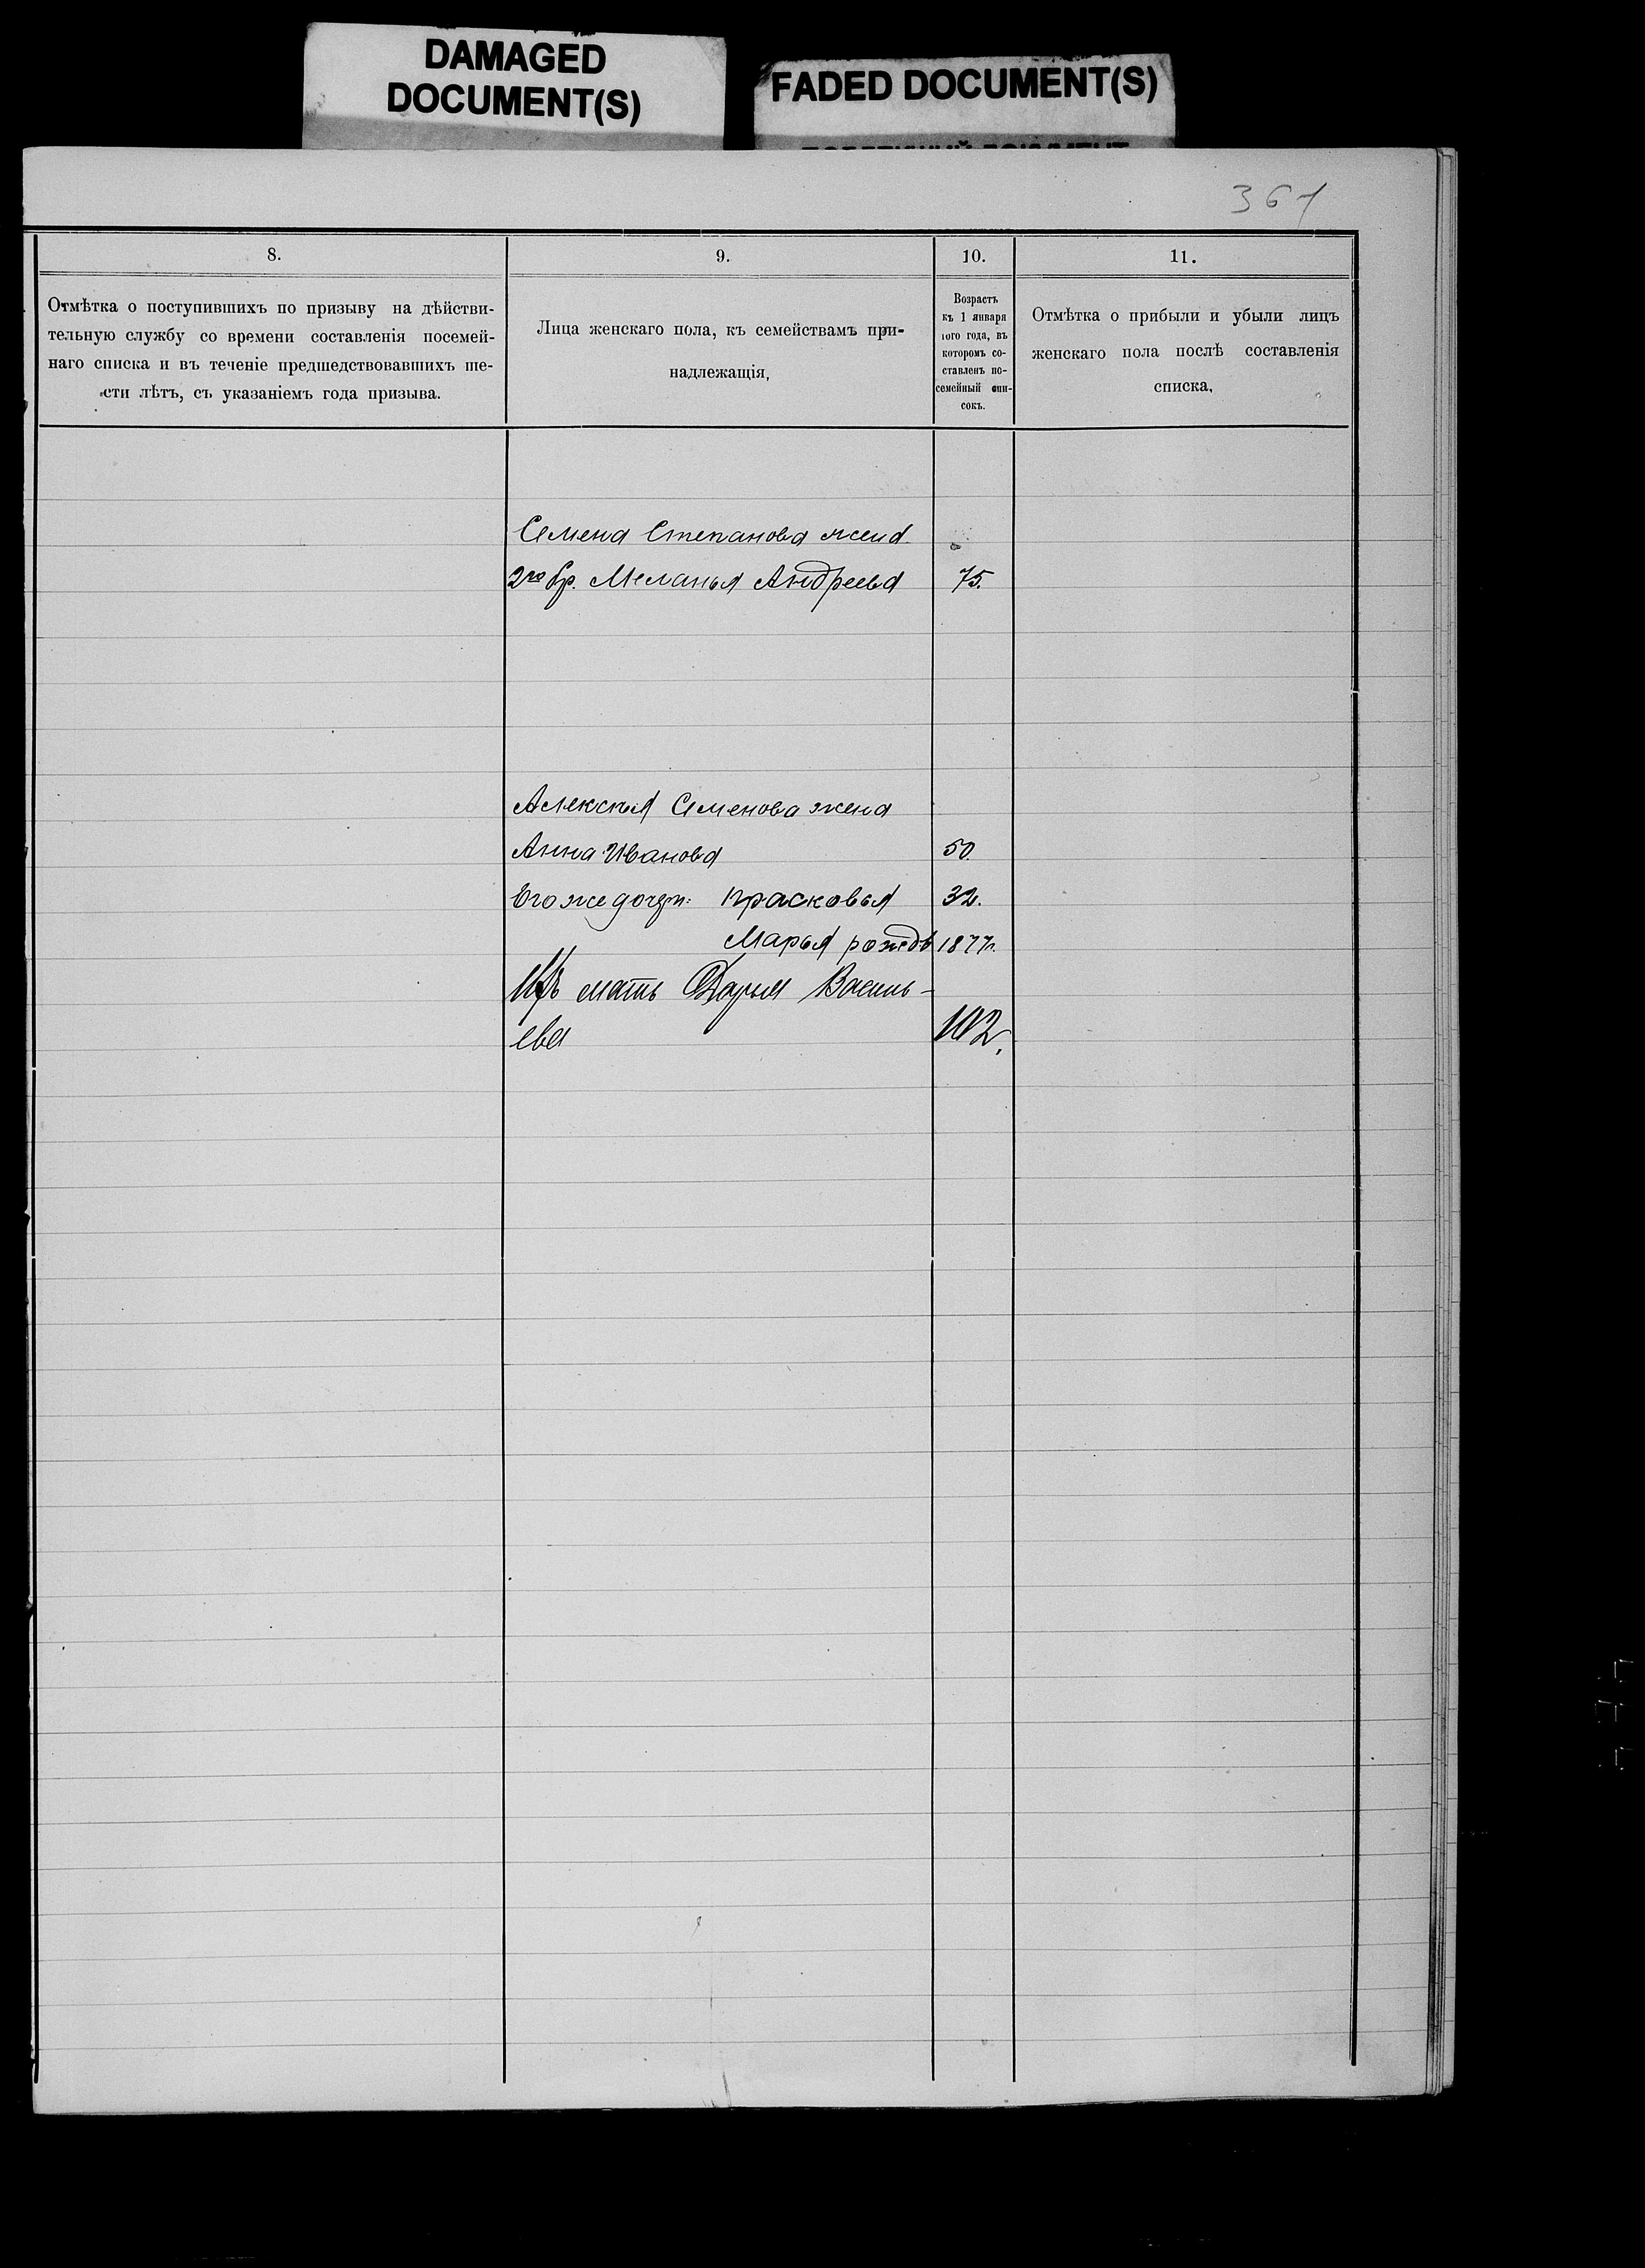 DAMAGED
DOCUMENT(S)
FADED DOCUMENT(S)
361
8.
9.
10.
11.
Отмѣтка о поступившихъ по призыву на дѣйстви-
тельную службу со времени составленія посемей-
наго списка и въ теченіе предшедствовавшихъ ше-
сти лѣтъ, съ указаніемъ года призыва.
Лица женскаго пола, къ семействамъ при-
надлежащія,
Возрастъ
къ 1 января
того года, въ
которомъ со-
ставленъ по-
семейный спи-
сокъ.
Отмѣтка о прибыли и убыли лицъ
женскаго пола послѣ составленія
списка.
Семена Степанова жена
2го бр. Меланья Андреева 75.
Алексея Семенова жена
Анна Иванова 50.
Его же дочери: Прасковья 32.
Марья рожд 1877г.
Ихъ мать Дарья Василь-
ева 102.